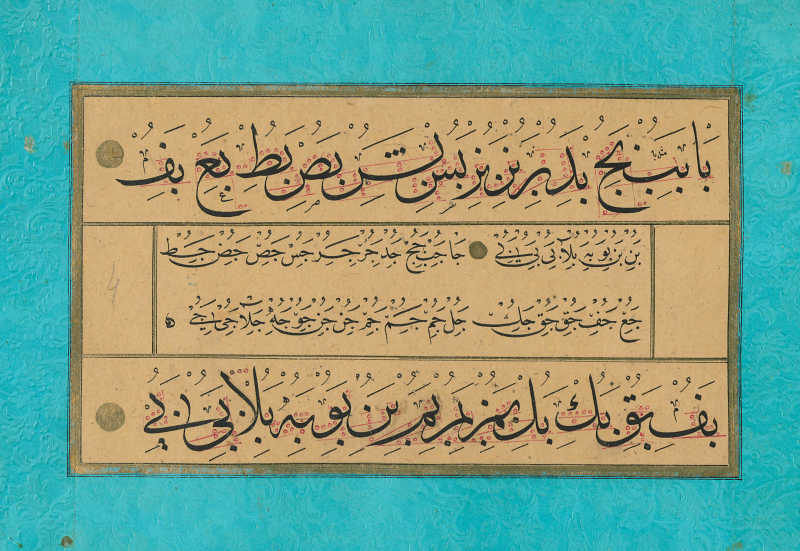 با بب بج بد بر بر بن بس بس بص بط بع بف
بن بن بو به بلا بى بى جا جب جج جد جر جر جس جص جص جط
جع جف جق جق جك جل جم جم جم جن جن جو جه جلا جى جى
بف بق بك بل بم بم بم بن بو به بلا بى بى